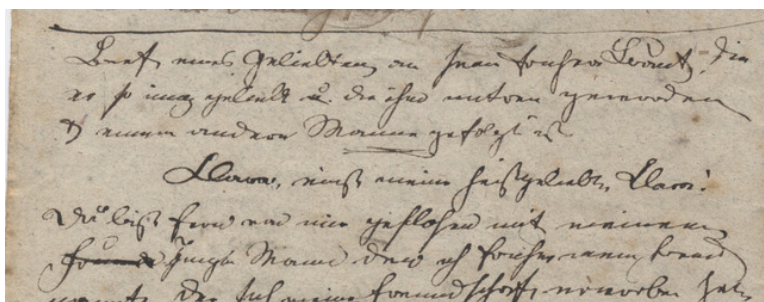 Brief eines Geliebten an seine frühere Braut, die
er so innig geliebt u. die ihm untreu geworden
& einem andern Manne gefolgt ist
Clara, einst meine heißgeliebte Clara!
Du bist fern von mir geflohen mit einem
Manne den ich früher mein Freund
der sich meine Freundschaft erworben